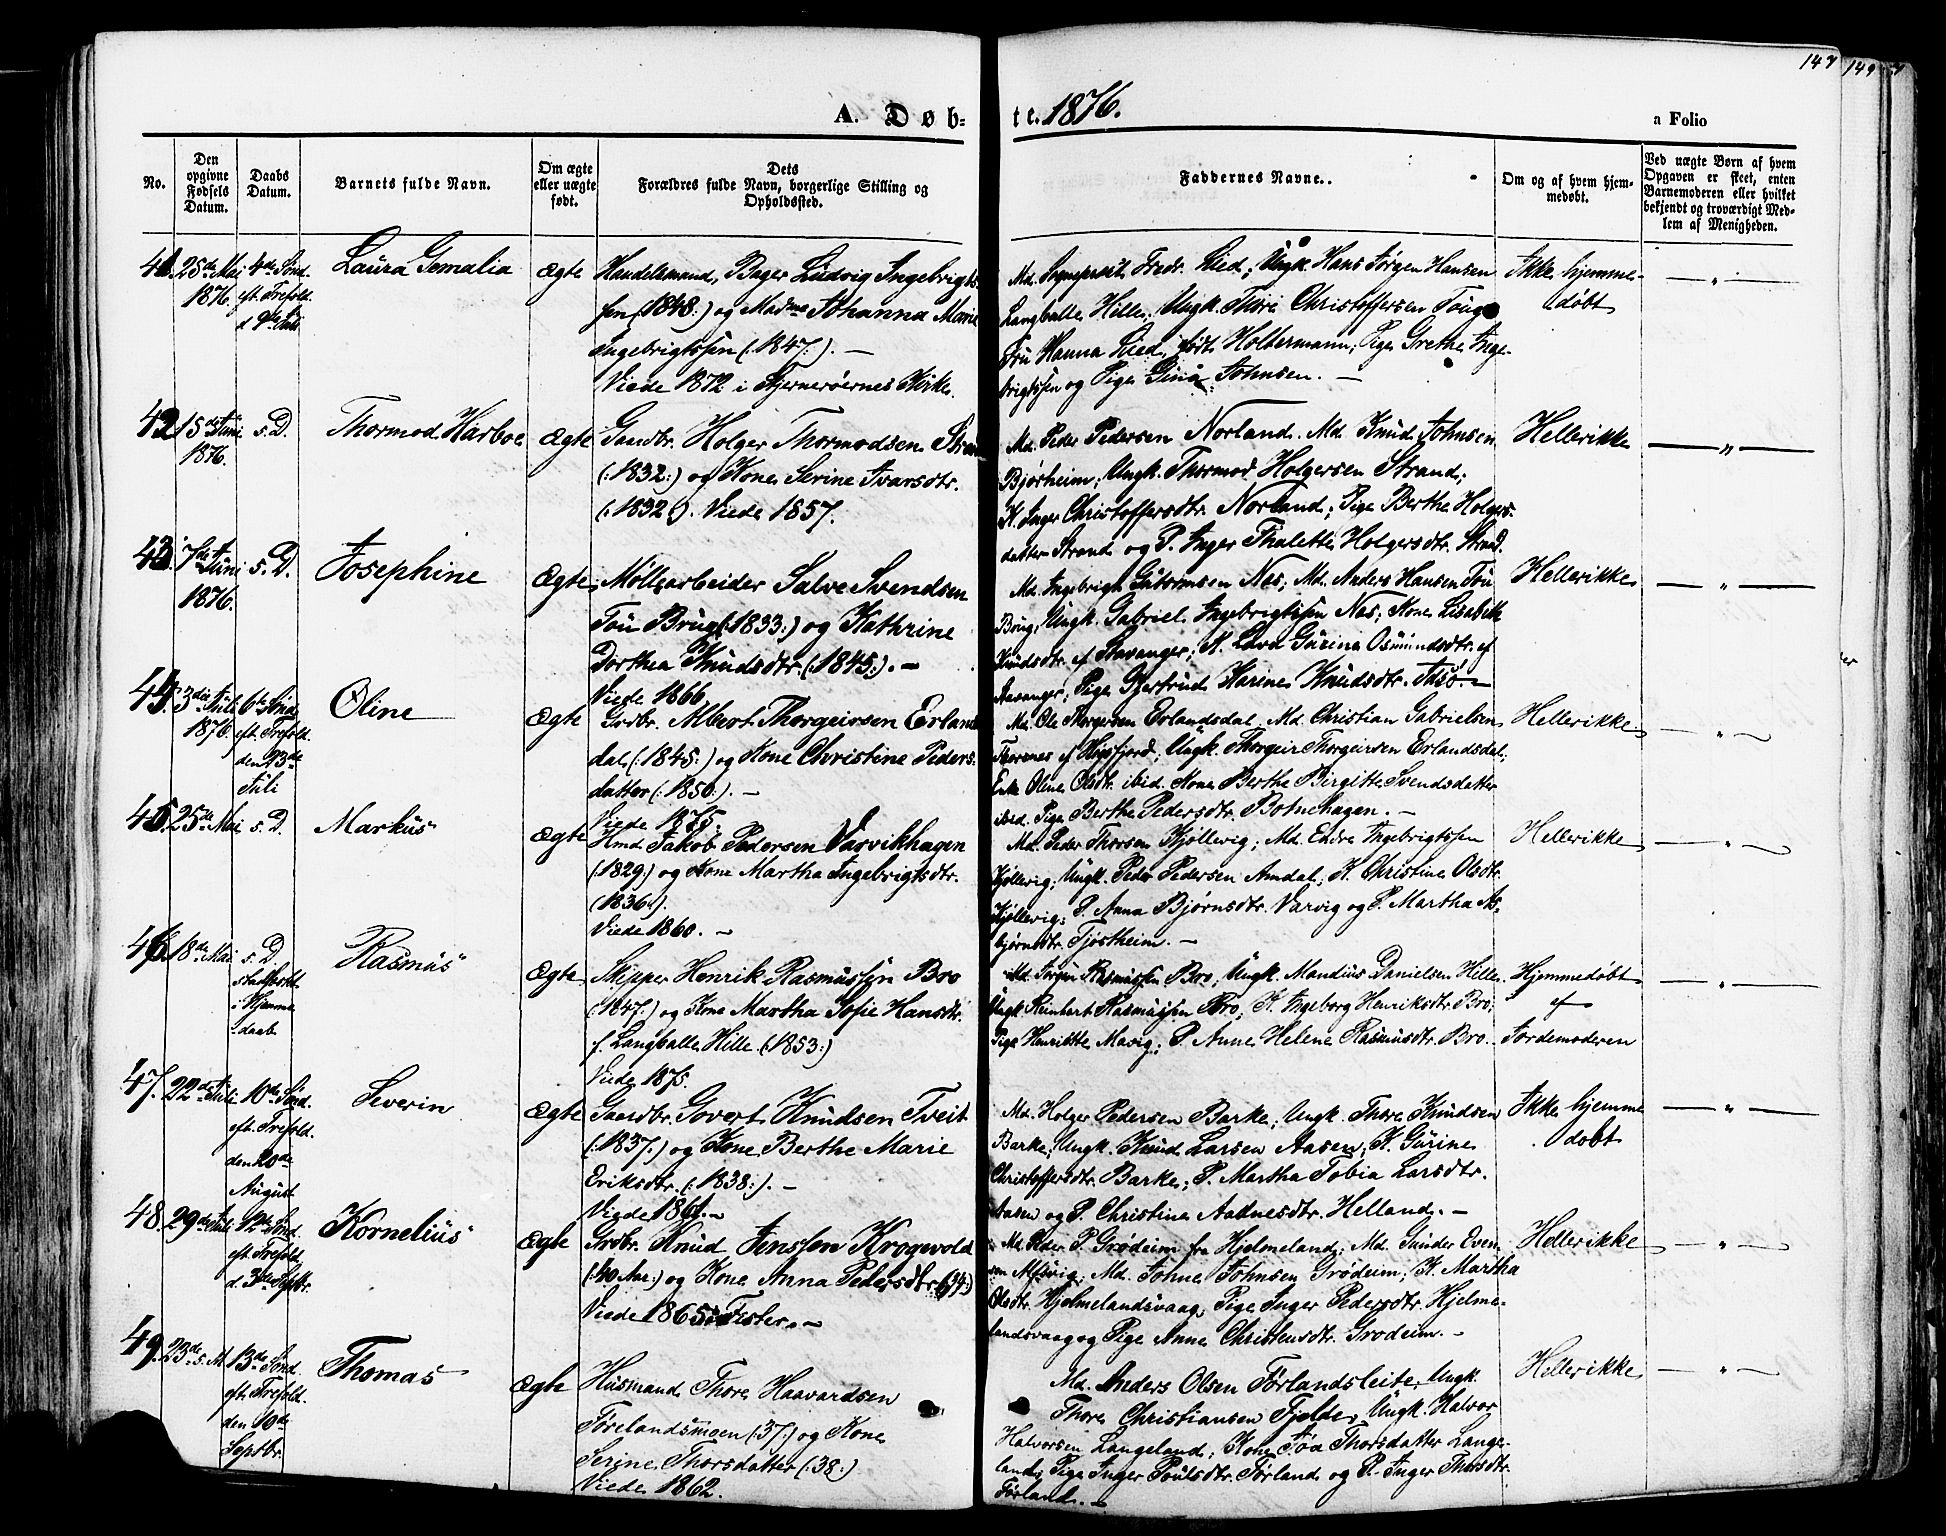 149 149
A. Døb-
te. 1876.
a Folio
No.
Den opgivne Fødsels Datum.
Daabs Datum.
Barnets fulde Navn.
Om ægte eller uægte født.
Dets
Forældres fulde Navn, borgerlige Stilling og
Opholdssted.
Faddernes Navne.
Om og af hvem hjem-
medøbt.
Ved uægte Børn af hvem
Opgaven er skeet, enten
Barnemoderen eller hvilket
bekjendt og troværdigt Med-
lem af Menigheden.
41. 25de Mai 1876. 4de Sønd. eft. Trefold. d 9de Juli
Laura Gemalia
Ægte
Handelsmand, Bager Ludvig Ingebrigt-
sen (:1848:) og Madme Johanna Marie
Ingebrigtssen (:1847:). —
Viede 1872 i Fjernerøernes Kirke.
Md. Sogneprest Fredr. Lied; Ungk. Hans Jørgen Hansen
Langballe Hille; Ungk. Thore Christoffersen Toug
Fru Hanna Lied, født Holtermann; Pige Grethe Inge-
brigtssen og Pige Gina Johnsen. —
Ikke hjemme-
døbt
— " —
42. 15de Juni 1876. s. D.
Thormod Harboe
Ægte
Gaardbr. Holger Thormodsen Stran
(:1832:) og Kone Serine Ivarsdtr.
(:1832:). Viede 1857.
Md. Peder Pedersen Norland. Md. Knud Johnsen
Bjørheim; Ungk. Thormod Holgersen Strand;
K. Inger Christoffersdtr. Norland; Pige Berthe Holgers-
datter Strand og P. Inger Thalette Holgersdtr. Strand.
Hellerikke
— " —
43. 7de Juni 1876. s. D.
Josephine
Ægte
Møllearbeider Salve Svendsen
Tou Brug (:1833:) og Kathrine
Dorthea Knudsdtr. (:1845:). —
Viede 1866.
Md. Ingebrigt Gutormsen Nas; Md. Anders Hansen Tou
Brug; Ungk. Gabriel Ingebrigtssen Nas; Kone Lisabeth
Knudsdtr. af Stavanger; K. Lava Gurina Osmundsdtr. af
Stavanger; Pige Gjertrud Karine Knudsdtr. Idsø. —
Hellerikke
— " —
44. 3die Juli 1876. 6te Sønd. eft. Trefold. den 23de Juli
Oline
Ægte
Grdbr. Albert Thorgeirsen Erlands
dal (:1845:) og Kone Christine Peders-
datter (:1850:). —
Viede 1875.
Md. Ole Thorgersen Erlandsdal, Md. Christian Gabrielsen
af Høgsfjord; Ungk. Thorgeir Thorgeirsen Erlandsdal;
Enke Oline Olsdtr. ibid. Kone Berthe Birgitte Svendsdatter
ibid. Pige Berthe Pedersdtr. Botnehagen. —
Hellerikke
— " —
45. 25de Mai s. D.
Markus
Ægte
Hmd Jakob Pedersen Vasvikhagen
(:1829:) og Kone Martha Ingebrigtsdtr.
(:1836:).
Viede 1860. —
Md. Peder Thorsen Kjøllevig; Md. Endre Ingebrigtssen
Kjøllevig; Ungk. Peder Pedersen Amdal; K. Christine Olsdtr.
Kjøllevig; P. Anna Bjørnsdtr. Varvig og P. Martha As-
bjørnsdtr. Tjøstheim. —
Hellerikke
— " —
46. 18de Mai s. D. stadfæstet i Hjemme-daab
Rasmus
Ægte
Skipper Henrik Rasmussen Bro
(:1847:) og Kone Martha Sofie Hansdtr.
f. Langballe Hille. (:1853:)
Viede 1875.
Md. Jørgen Rasmussen Bro; Ungk. Mandius Danielsen Hille.
Ungk. Reinhert Rasmussen Bro; K. Ingeborg Henriksdtr. Bro;
Pige Henriette Mavig; P. Anne Helene Rasmusdtr. Bro.
Hjemmedøbt
af
Jordemoderen
— " —
47. 22de Juli 10de Sønd. eft. Trefold. den 20de August
Severin
Ægte
Gaardbr. Govert Knudsen Tveit
(:1837:) og Kone Berthe Marie
Eriksdtr. (:1838:). —
Viede 1861. —
Md. Holger Pedersen Barke; Ungk. Thore Knudsen
Barke; Ungk. Knud Larsen Aasen; K. Gurine
Christoffersdtr. Barke; P. Martha Tobia Larsdtr.
Aasen og P. Christine Aadnesdtr. Helland. —
Ikke hjemme
døbt
— " —
48. 29de Juli 12te Sønd. eft. Trefold. d. 3de Septbr.
Kornelius
Ægte
Grdbr. Knud Jenssen Krogevold
(:40 Aar:) og Kone Anna Pedersdtr. (:34:)
Viede 1865 i Fister. —
Md. Peder P. Grødeim fra Hjelmeland; Md. Gunder Even-
sen Alfsvig; Md. Johne Johnsen Grødeim; K. Martha
Olsdtr. Hjelmelandsvaag; Pige Inger Pedersdtr. Hjelme-
landsvaag og Pige Anne Christensdtr. Grodeim. —
Hellerikke
— " —
49. 23de s. M. 13de Sønd. eft. Trefold. den 10de Septbr.
Thomas
Ægte
Husmand Thore Haavardsen
Førelandsmoen (:37:) og Kone
Serine Thorsdatter (:38:)
Viede 1862.
Md. Anders Olsen Førlandsleite, Ungk.
Thore Christiansen Fjelde, Ungk. Halvor
Halvorsen Langeland; Kone Thorsdatter Lange-
land; Pige Inger Poulsdtr. Førland og P. Inger Thorsdtr.
Førland. —
Hellerikke
— " —